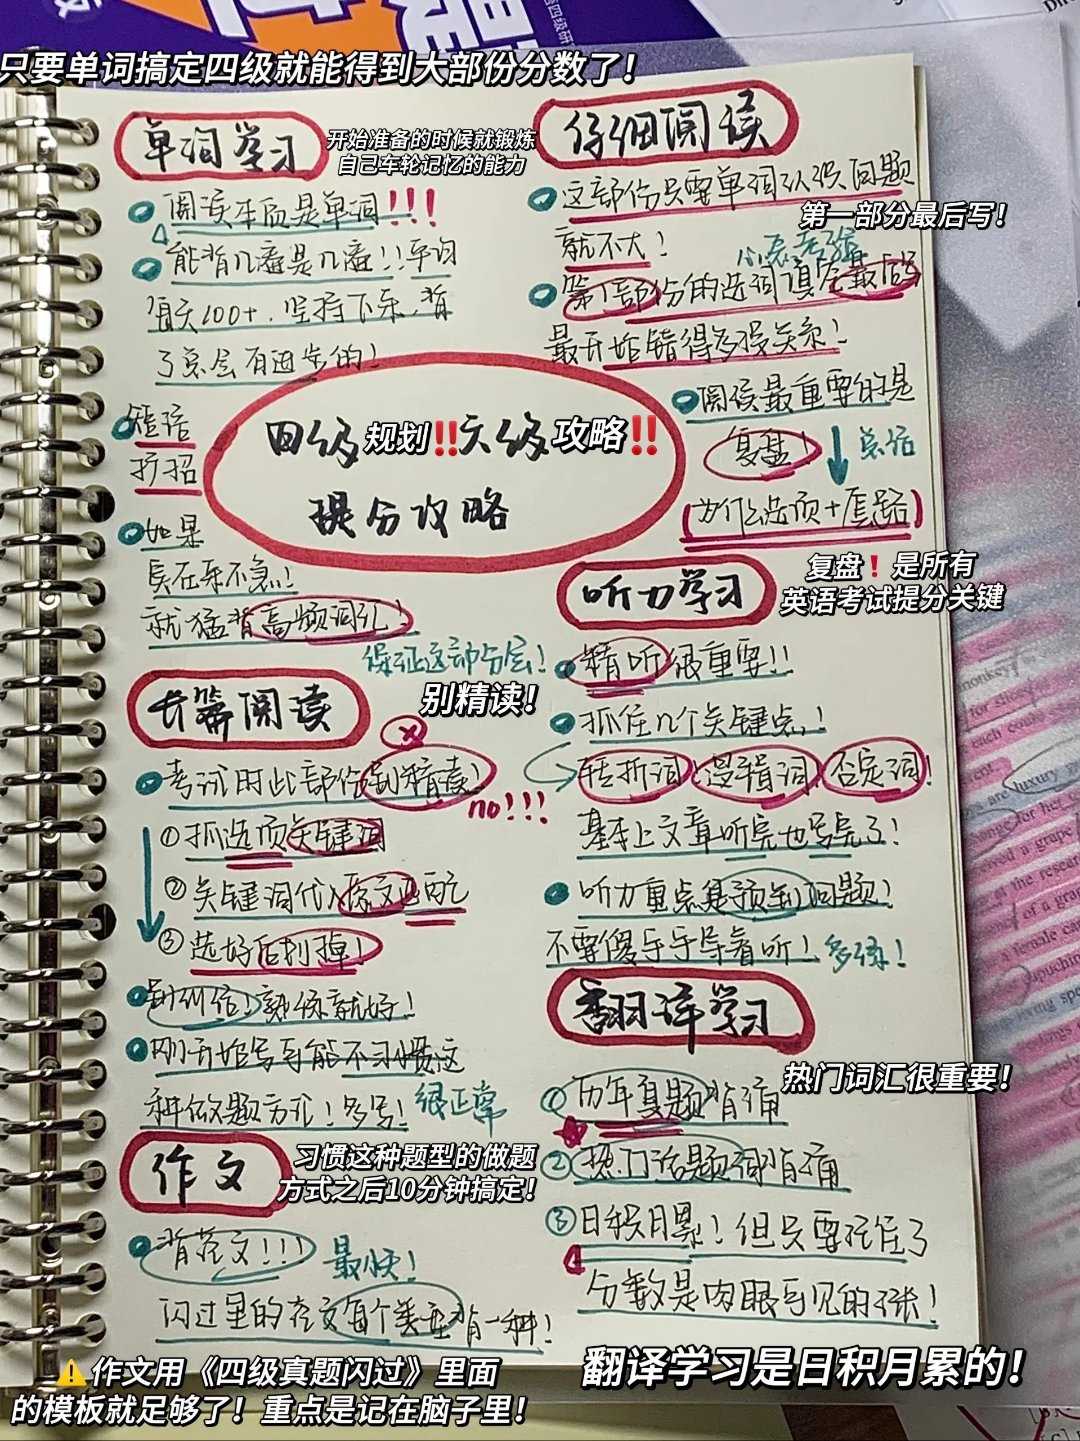 只要单词搞定四级就能得到大部份分数了！
单词学习
开始准备的时候就锻炼
自己车轮记忆的能力
阅读本质是单词!!!
能背几遍是几遍!!平均
每天100+,坚持下来,背
了总会有进步的!
短语
扩招
如果
实在来不急!
就猛背高频词汇!
保证这部分会!
仔细阅读
这部份只要单词认识问题
就不大!
第一部分最后写！
第1部份的选词填空最后写
最开始错得多没关系!
阅读最重要的是
复盘!
总结
为什么选项+原题
复盘❗是所有
英语考试提分关键
四级规划‼️六级攻略‼️
提分攻略
长篇阅读
别精读！
考试时此部份别精读!
no!!!
①抓选项关键词
②关键词代入原文匹配
③选好后划掉!
别纠结!熟练就好!
刚开始写可能不习惯这
种做题方式!多写!
很正常
听力学习
精听很重要!!
抓住几个关键点!
转折词 逻辑词 否定词!
基本上文章听完也写完了!
听力重点是预判问题!
不要傻乎乎等着听!
多练!
翻译学习
热门词汇很重要！
①历年真题背诵
②热门话题词背诵
③日积月累!但只要记住了
分数是肉眼可见的涨!
翻译学习是日积月累的！
作文
习惯这种题型的做题
方式之后10分钟搞定！
背范文!!!
最快!
闪过里的范文每个类型背一种!
⚠️作文用《四级真题闪过》里面
的模板就足够了！重点是记在脑子里！